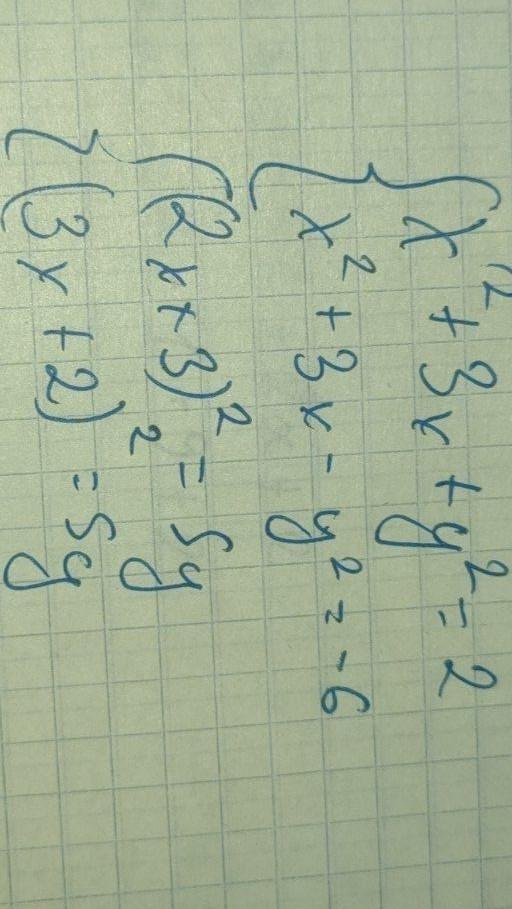 { x² + 3x + y² = 2
x² + 3x - y² = -6
{ (2x+3)² = 5y
(3x+2)² = 5y